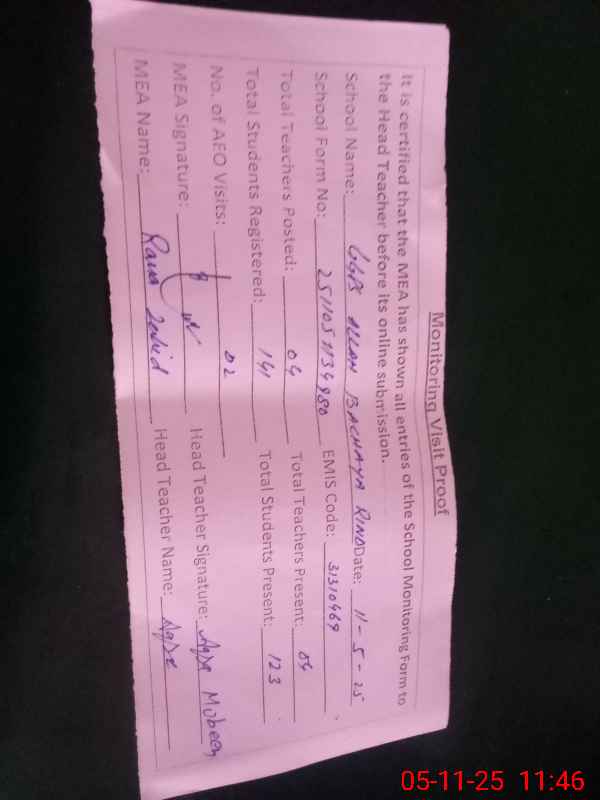 Monitoring Visit Proof
It is certified that the MEA has shown all entries of the School Monitoring Form to
the Head Teacher before its online submission.
School Name: GGPS ALLAH BACHAYA RIND Date: 11-5-25
School Form No: 2511051134980 EMIS Code: 31310469
Total Teachers Posted: 04 Total Teachers Present: 04
Total Students Registered: 141 Total Students Present: 123
No. of AEO Visits: 02
MEA Signature: Head Teacher Signature: Mubeen
MEA Name: Rana Head Teacher Name:
05-11-25 11:46